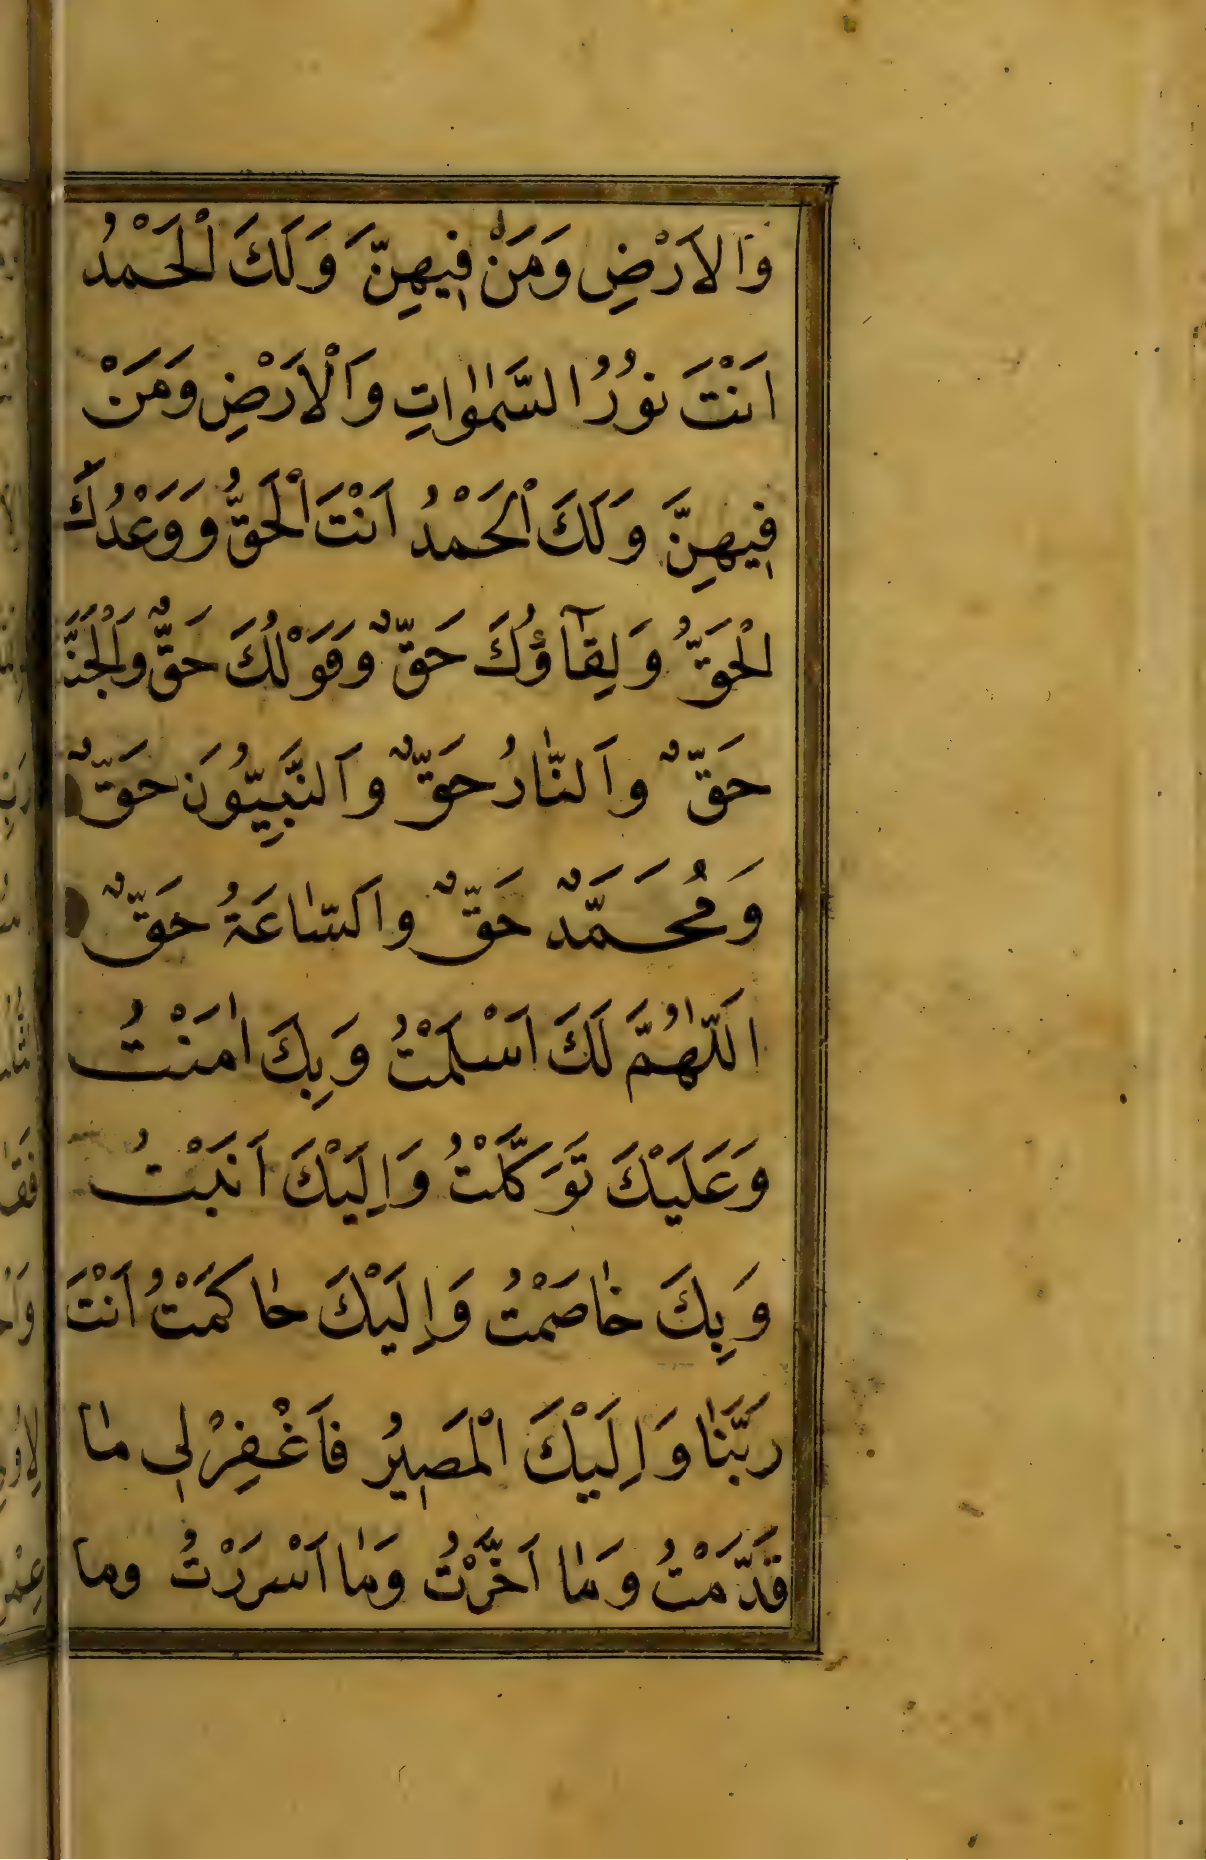 وَالاَرْضِ وَمَنْ فِيهِنَّ وَلَكَ الْحَمْدُ
اَنْتَ نوُرُ السَّمٰوٰاتِ وَاَلْاَرْضِ وَمَنْ
فِيهِنَّ وَلَكَ الْحَمْدُ اَنْتَ الْحَقُّ وَوَعْدُكَ
الْحَقُّ وَلِقٰٓاؤُكَ حَقٌّ وَقَوْلُكَ حَقٌّ وَالْجَنَّ
حَقٌّ واَلنّٰارُ حَقٌّ واَلنَّبِيّوُنَ حَقٌّ
وَمُحَمَّدٌ حَقٌّ واَلسّٰاعَةُ حَقٌّ
اَللّٰهُمَّ لَكَ اَسْلَمْتُ وَبِكَ اٰمَنْتُ
وَعَلَيْكَ تَوَكَّلْتُ وَاِلَيْكَ اَنَبْتُ
وَبِكَ خٰاصَمْتُ وَاِلَيْكَ حٰاكَمْتُ اَنْتَ
رَبَّنٰا وَاِلَيْكَ الْمَصِيرُ فَاغْفِرْلِي مٰا
قَدَّمْتُ وَمٰا اَخَّرْتُ وَمٰا اَسْرَرْتُ وما